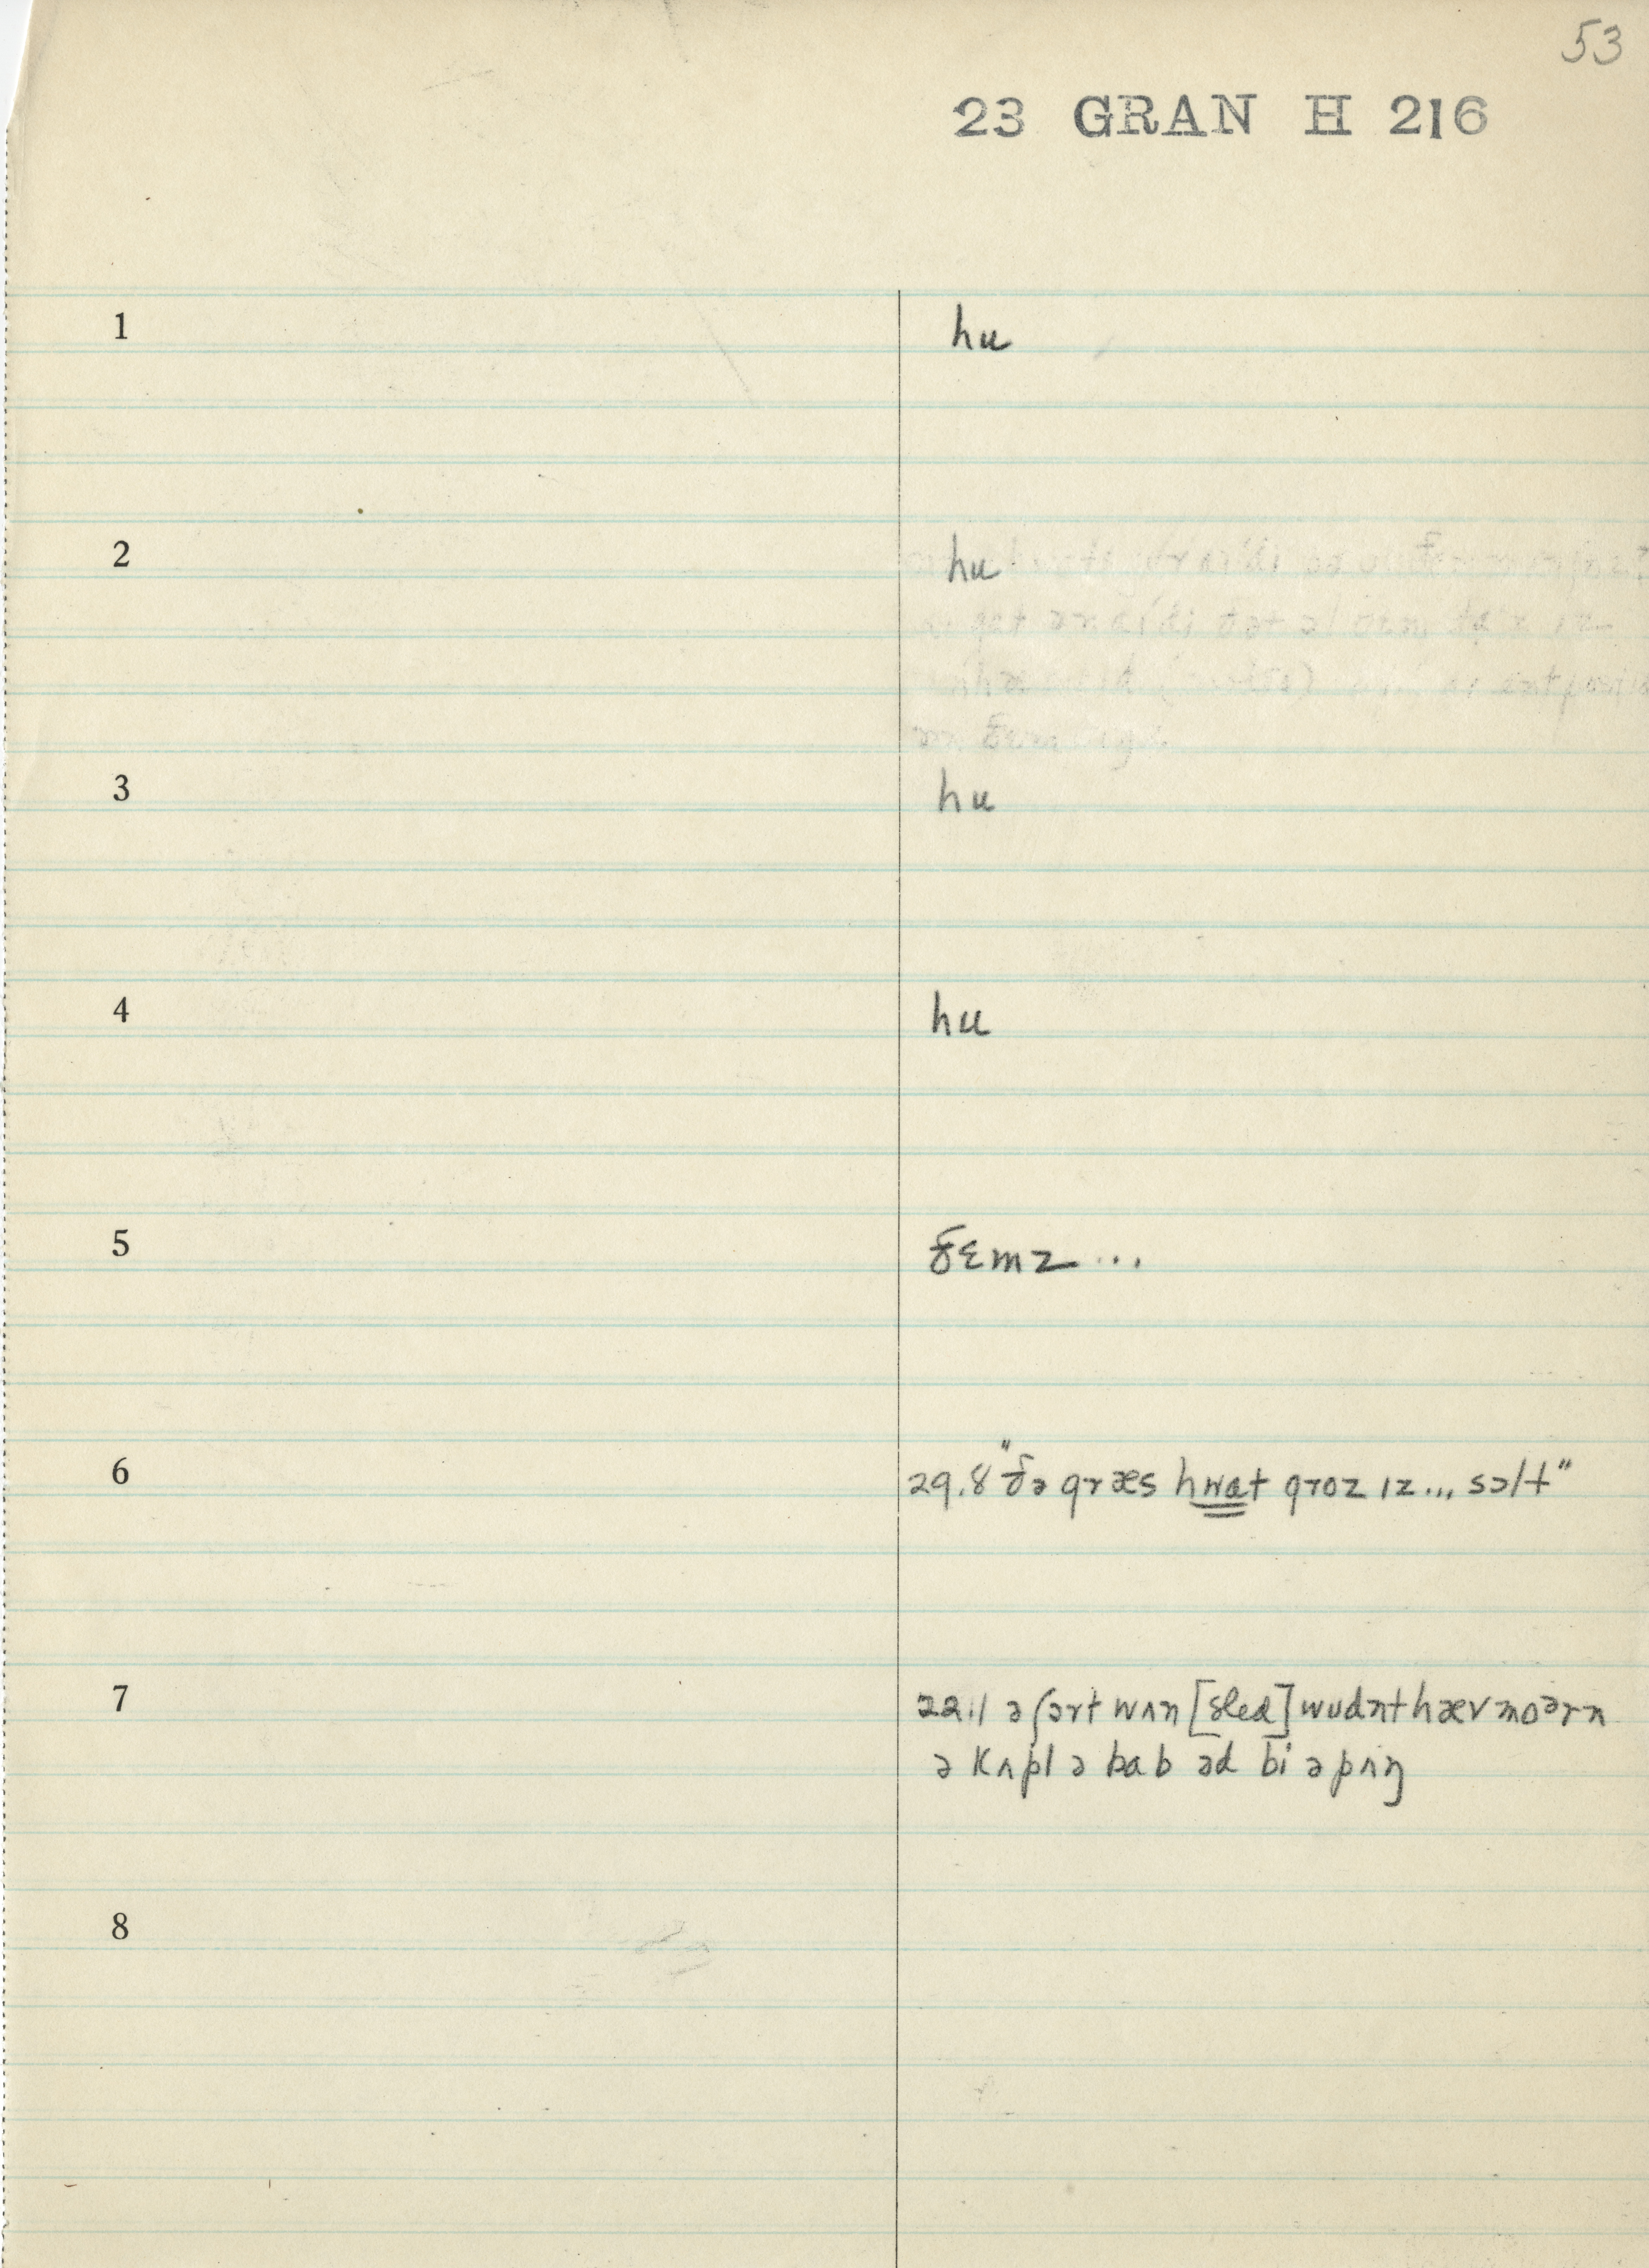 53
23 GRAN H 216
1 hu
2 hu
3 hu
4 hu
5 ðɛmz ...
6 29.8 "ðə græs hwat groz ɪz... sɔlt"
7 22.1 ə ʃɔrt wʌn [sled] wudnt hæv moərn
ə kʌpl ə bab əd bi ə pʌŋ
8